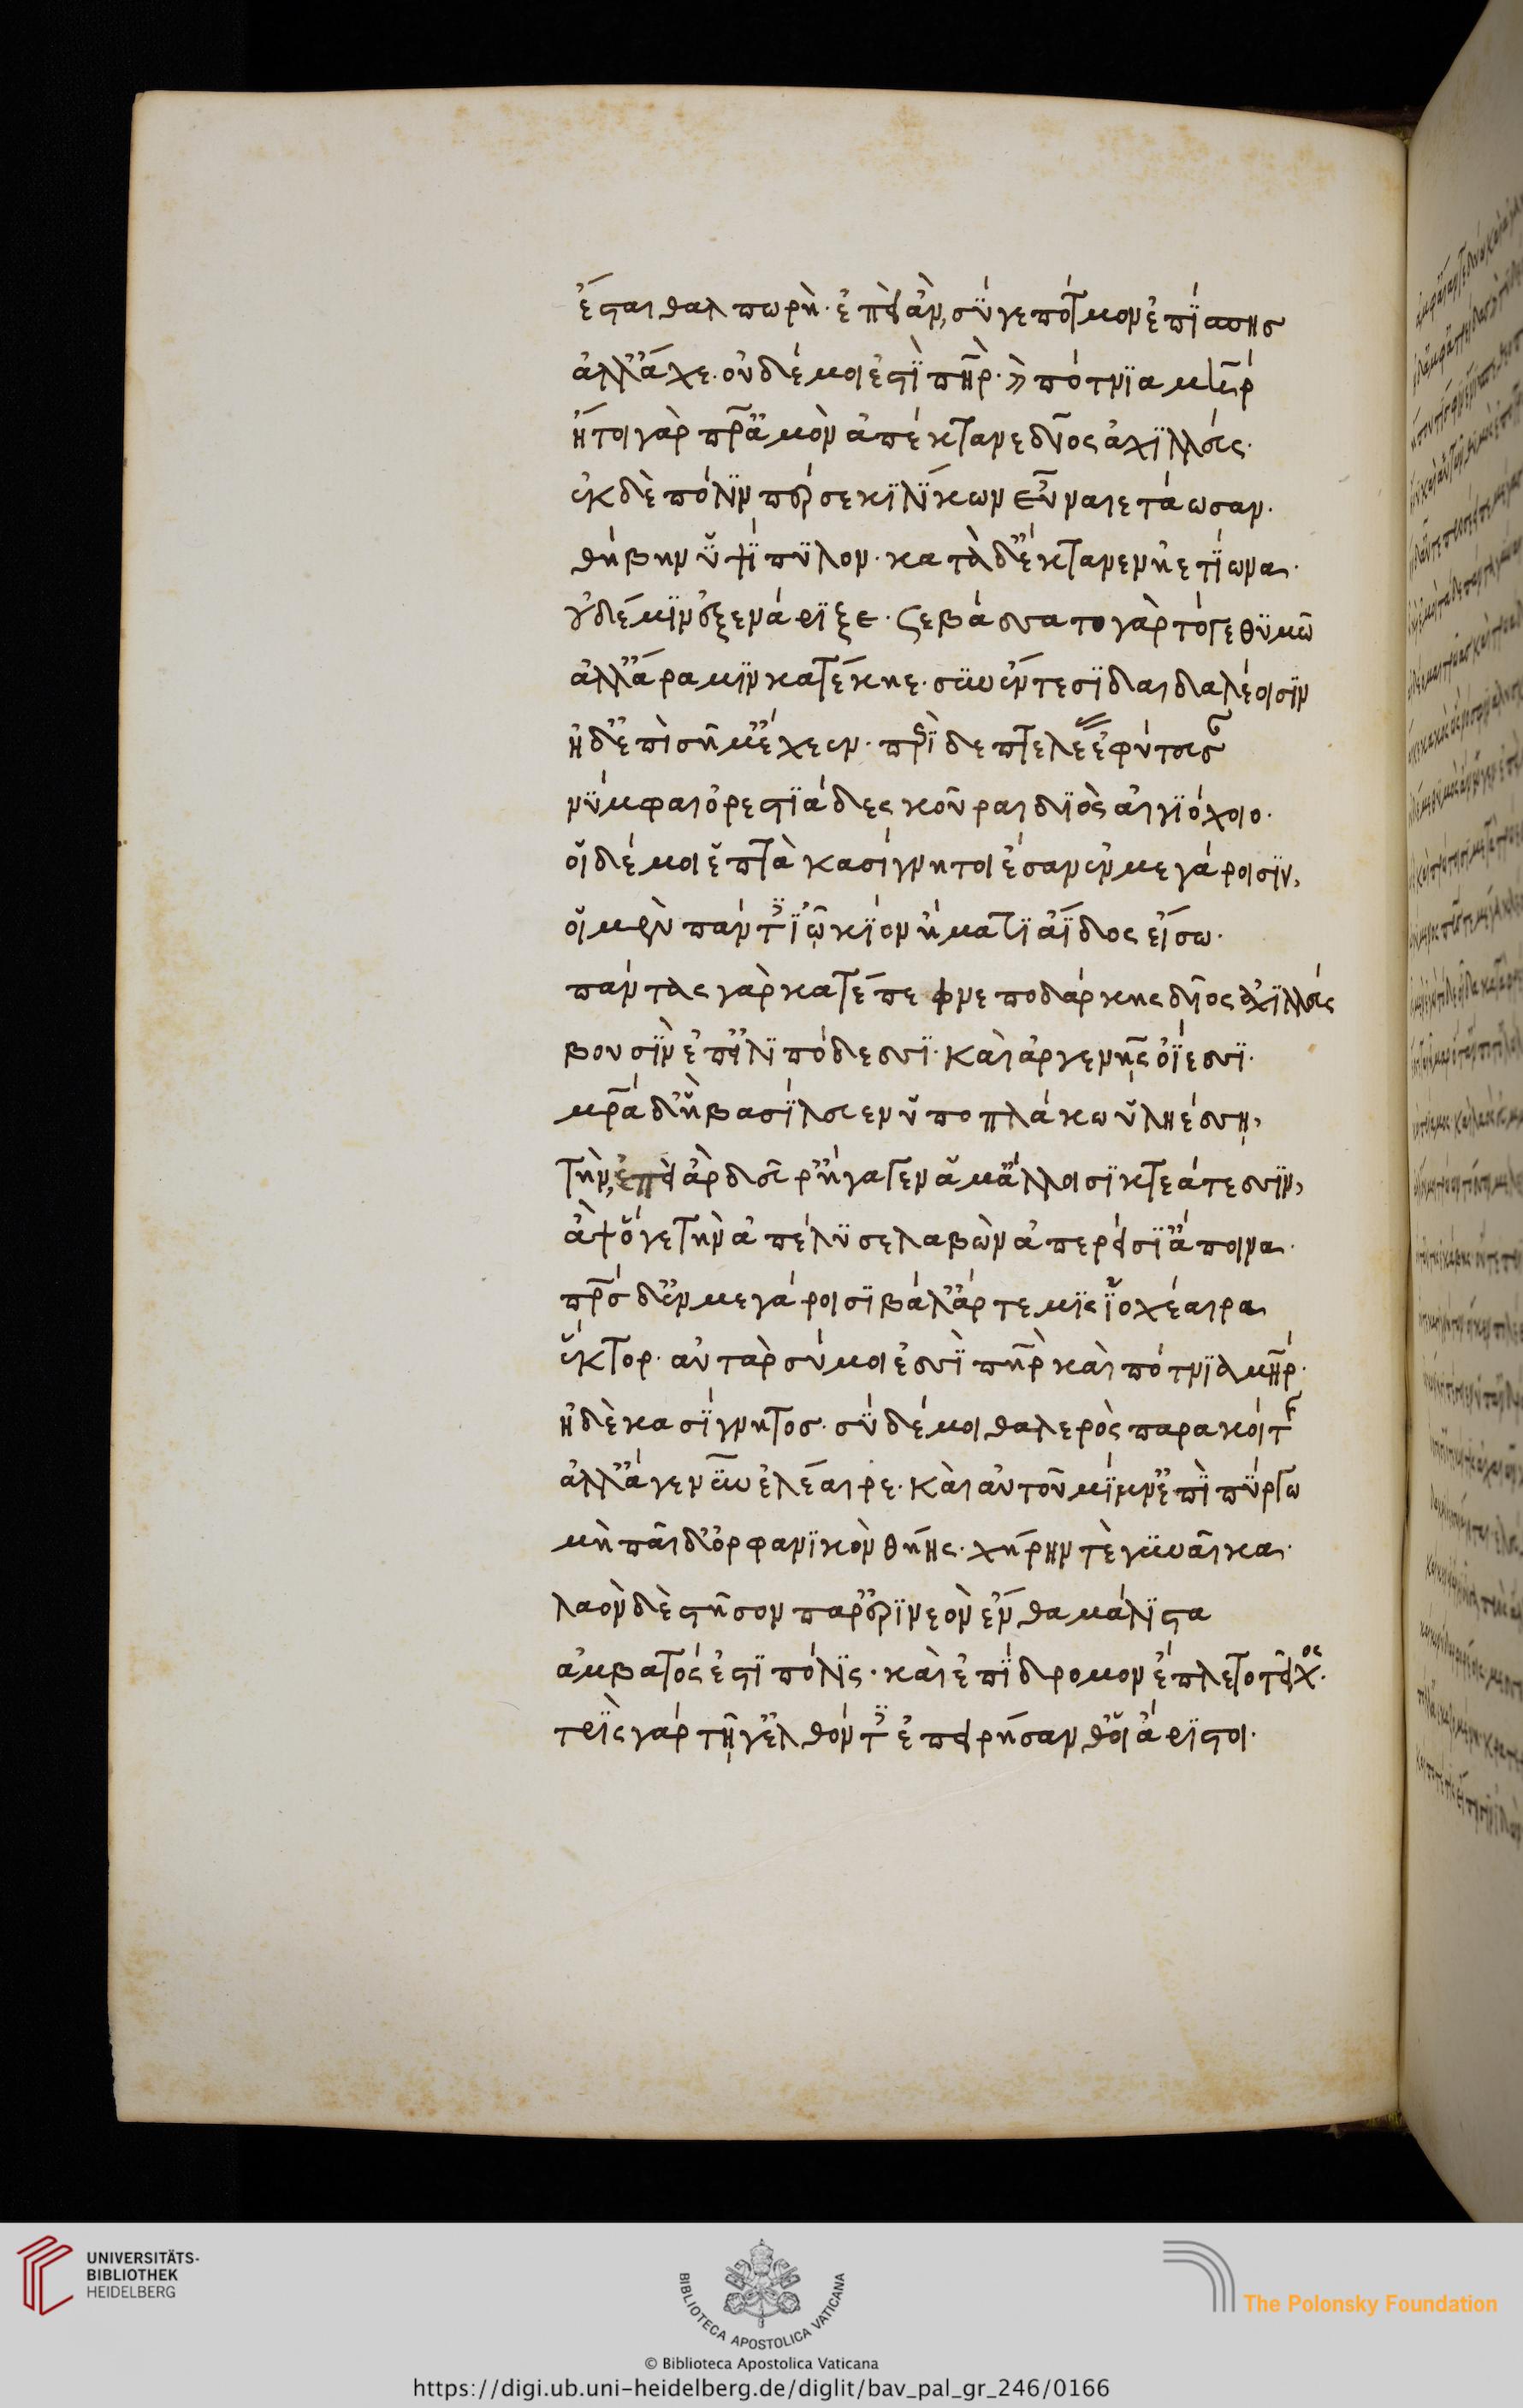 ἔσται θαλπωρὴ· ἐπεὶ ἂν, σύ γε πότμον ἐπίσπης
ἀλλ' ἄχε· οὐδέ μοι ἐστὶ πατὴρ· καὶ πότνια μήτηρ
ἤτοι γὰρ πατέρα ἀμὸν ἀπέκτανε δῖος ἀχιλλεύς·
ἐκ δὲ πόλιν πέρσε κιλίκων εὖ ναιετάωσαν·
θήβην ὑψίπυλον· κατὰ δ' ἔκτανεν ἠετίωνα·
οὐδέ μιν ἐξενάριξε· σεβάσσατο γὰρ τόγε θυμῶ
ἀλλ' ἄρα μιν κατέκηε· σὺν ἔντεσι δαιδαλέοισιν
ἠδ' ἐπὶ σῆμ' ἔχεεν· περὶ δὲ πτελέε ἐφύτευσ
νύμφαι ὀρεστιάδες κοῦραι διὸς αἰγιόχοιο·
οἳ δέ μοι ἑπτὰ κασίγνητοι ἔσαν ἐν μεγάροισιν,
οἳ μὲν πάντες ἰῶ κίον ἤματι ἄϊδος εἴσω·
πάντας γὰρ κατέπεφνε ποδάρκης δῖος ἀχιλλεύς
βουσὶν ἐπ' εἰλιπόδεσσι· καὶ ἀργεννῆς ὀΐεσσι·
μητέρα δ' ἣ βασίλευεν ὑπο πλάκω ὑληέσση,
τὴν, ἐπεὶ ἂρ δεῦρ' ἤγατεν ἅμ' ἄλλοισι κτεάτεσσιν,
ἂψ ὅγε τὴν ἀπέλυσε λαβὼν ἀπερείσι' ἄποινα·
πατρὸς δ' ἐν μεγάροισι βάλ' ἄρτεμις ἰοχέαιρα
ἕκτορ· αὐτὰρ σύ μοι ἐσσὶ πατὴρ καὶ πότνια μήτηρ·
ἠδὲ κασίγνητος· σὺ δέ μοι θαλερὸς παρακοίτης
ἀλλ' ἄγε νῦν ἐλέαιρε· καὶ αὐτοῦ μίμν' ἐπὶ πύργω
μὴ παῖδ' ὀρφανικὸν θήης· χήρην τὲ γυναῖκα·
λαὸν δὲ στῆσον παρ' ἐρινεὸν ἔνθα μάλιστα
ἀμβατός ἐστι πόλις· καὶ ἐπίδρομον ἔπλετο τεῖχος·
τρὶς γάρ τῆ γ' ἐλθόντες ἐπειρήσανθ' οἱ ἄριστοι·
UNIVERSITÄTS-
BIBLIOTHEK
HEIDELBERG
BIBLIOTECA APOSTOLICA VATICANA
© Biblioteca Apostolica Vaticana
The Polonsky Foundation
https://digi.ub.uni-heidelberg.de/diglit/bav_pal_gr_246/0166